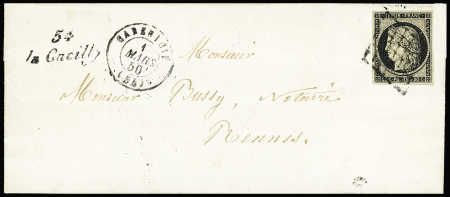 54
la Gacilly
1
MARS
50
Monsieur
Monsieur Bussy, Notaire
Rennes.